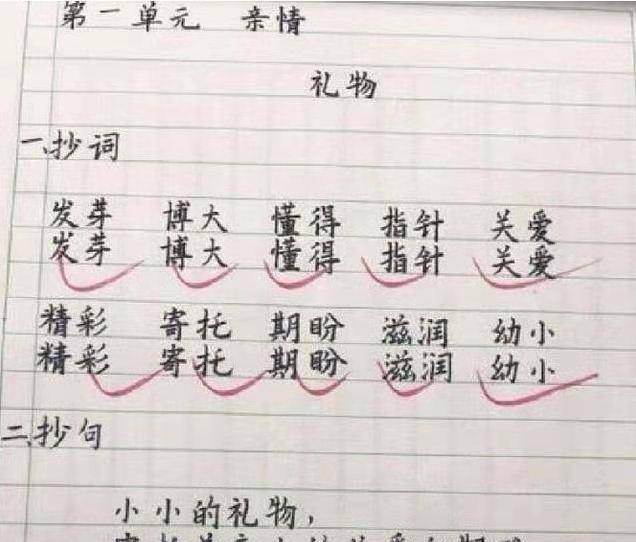 第一单元 亲情
礼物
一、抄词
发芽 博大 懂得 指针 关爱
发芽 博大 懂得 指针 关爱
精彩 寄托 期盼 滋润 幼小
精彩 寄托 期盼 滋润 幼小
二、抄句
小小的礼物，